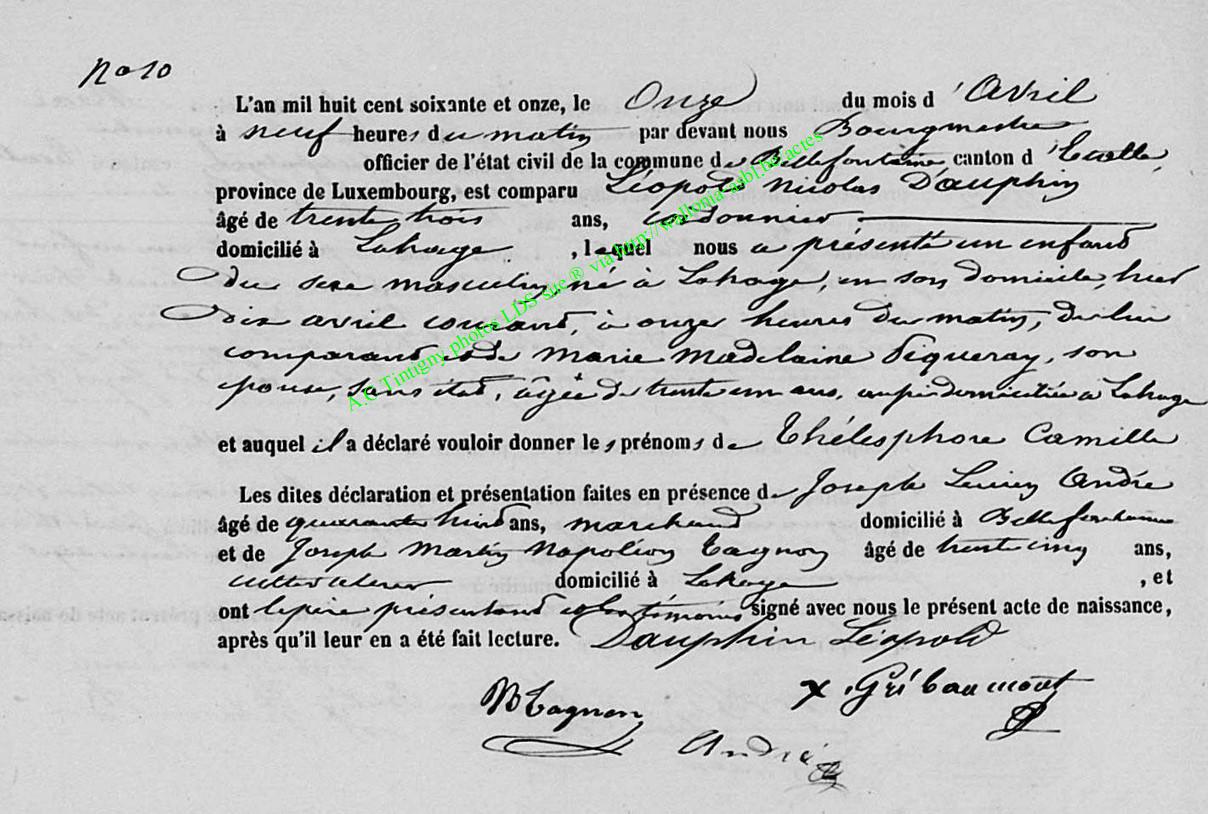 No 10
L'an mil huit cent soixante et onze, le Onze du mois d'Avril
à neuf heures du matin par devant nous Bourgmestre
officier de l'état civil de la commune de Bellefontaine canton d'Etalle,
province de Luxembourg, est comparu Léopold Nicolas Dauphin
âgé de trente trois ans, cordonnier
domicilié à Lahage, lequel nous a présenté un enfant
du sexe masculin, né à Lahage, en son domicile, hier
dix avril courant, à onze heures du matin, de lui
comparant et de Marie Madelaine Piqueray, son
épouse, sans état, âgée de trente un ans, aussi domiciliée à Lahage
et auquel il a déclaré vouloir donner les prénoms de Thélesphore Camille
Les dites déclaration et présentation faites en présence de Joseph André
âgé de quarante huit ans, marchand domicilié à Bellefontaine
et de Joseph Martin Napoléon Tagnon âgé de trente cinq ans,
cultivateur domicilié à Lahage, et
ont le père présentant et les témoins signé avec nous le présent acte de naissance,
après qu'il leur en a été fait lecture. Dauphin Léopold
NTagnon X. Gribaumont
André
A.C Tintigny photos LDS site ® via http://wallonia-asbl.be/actes